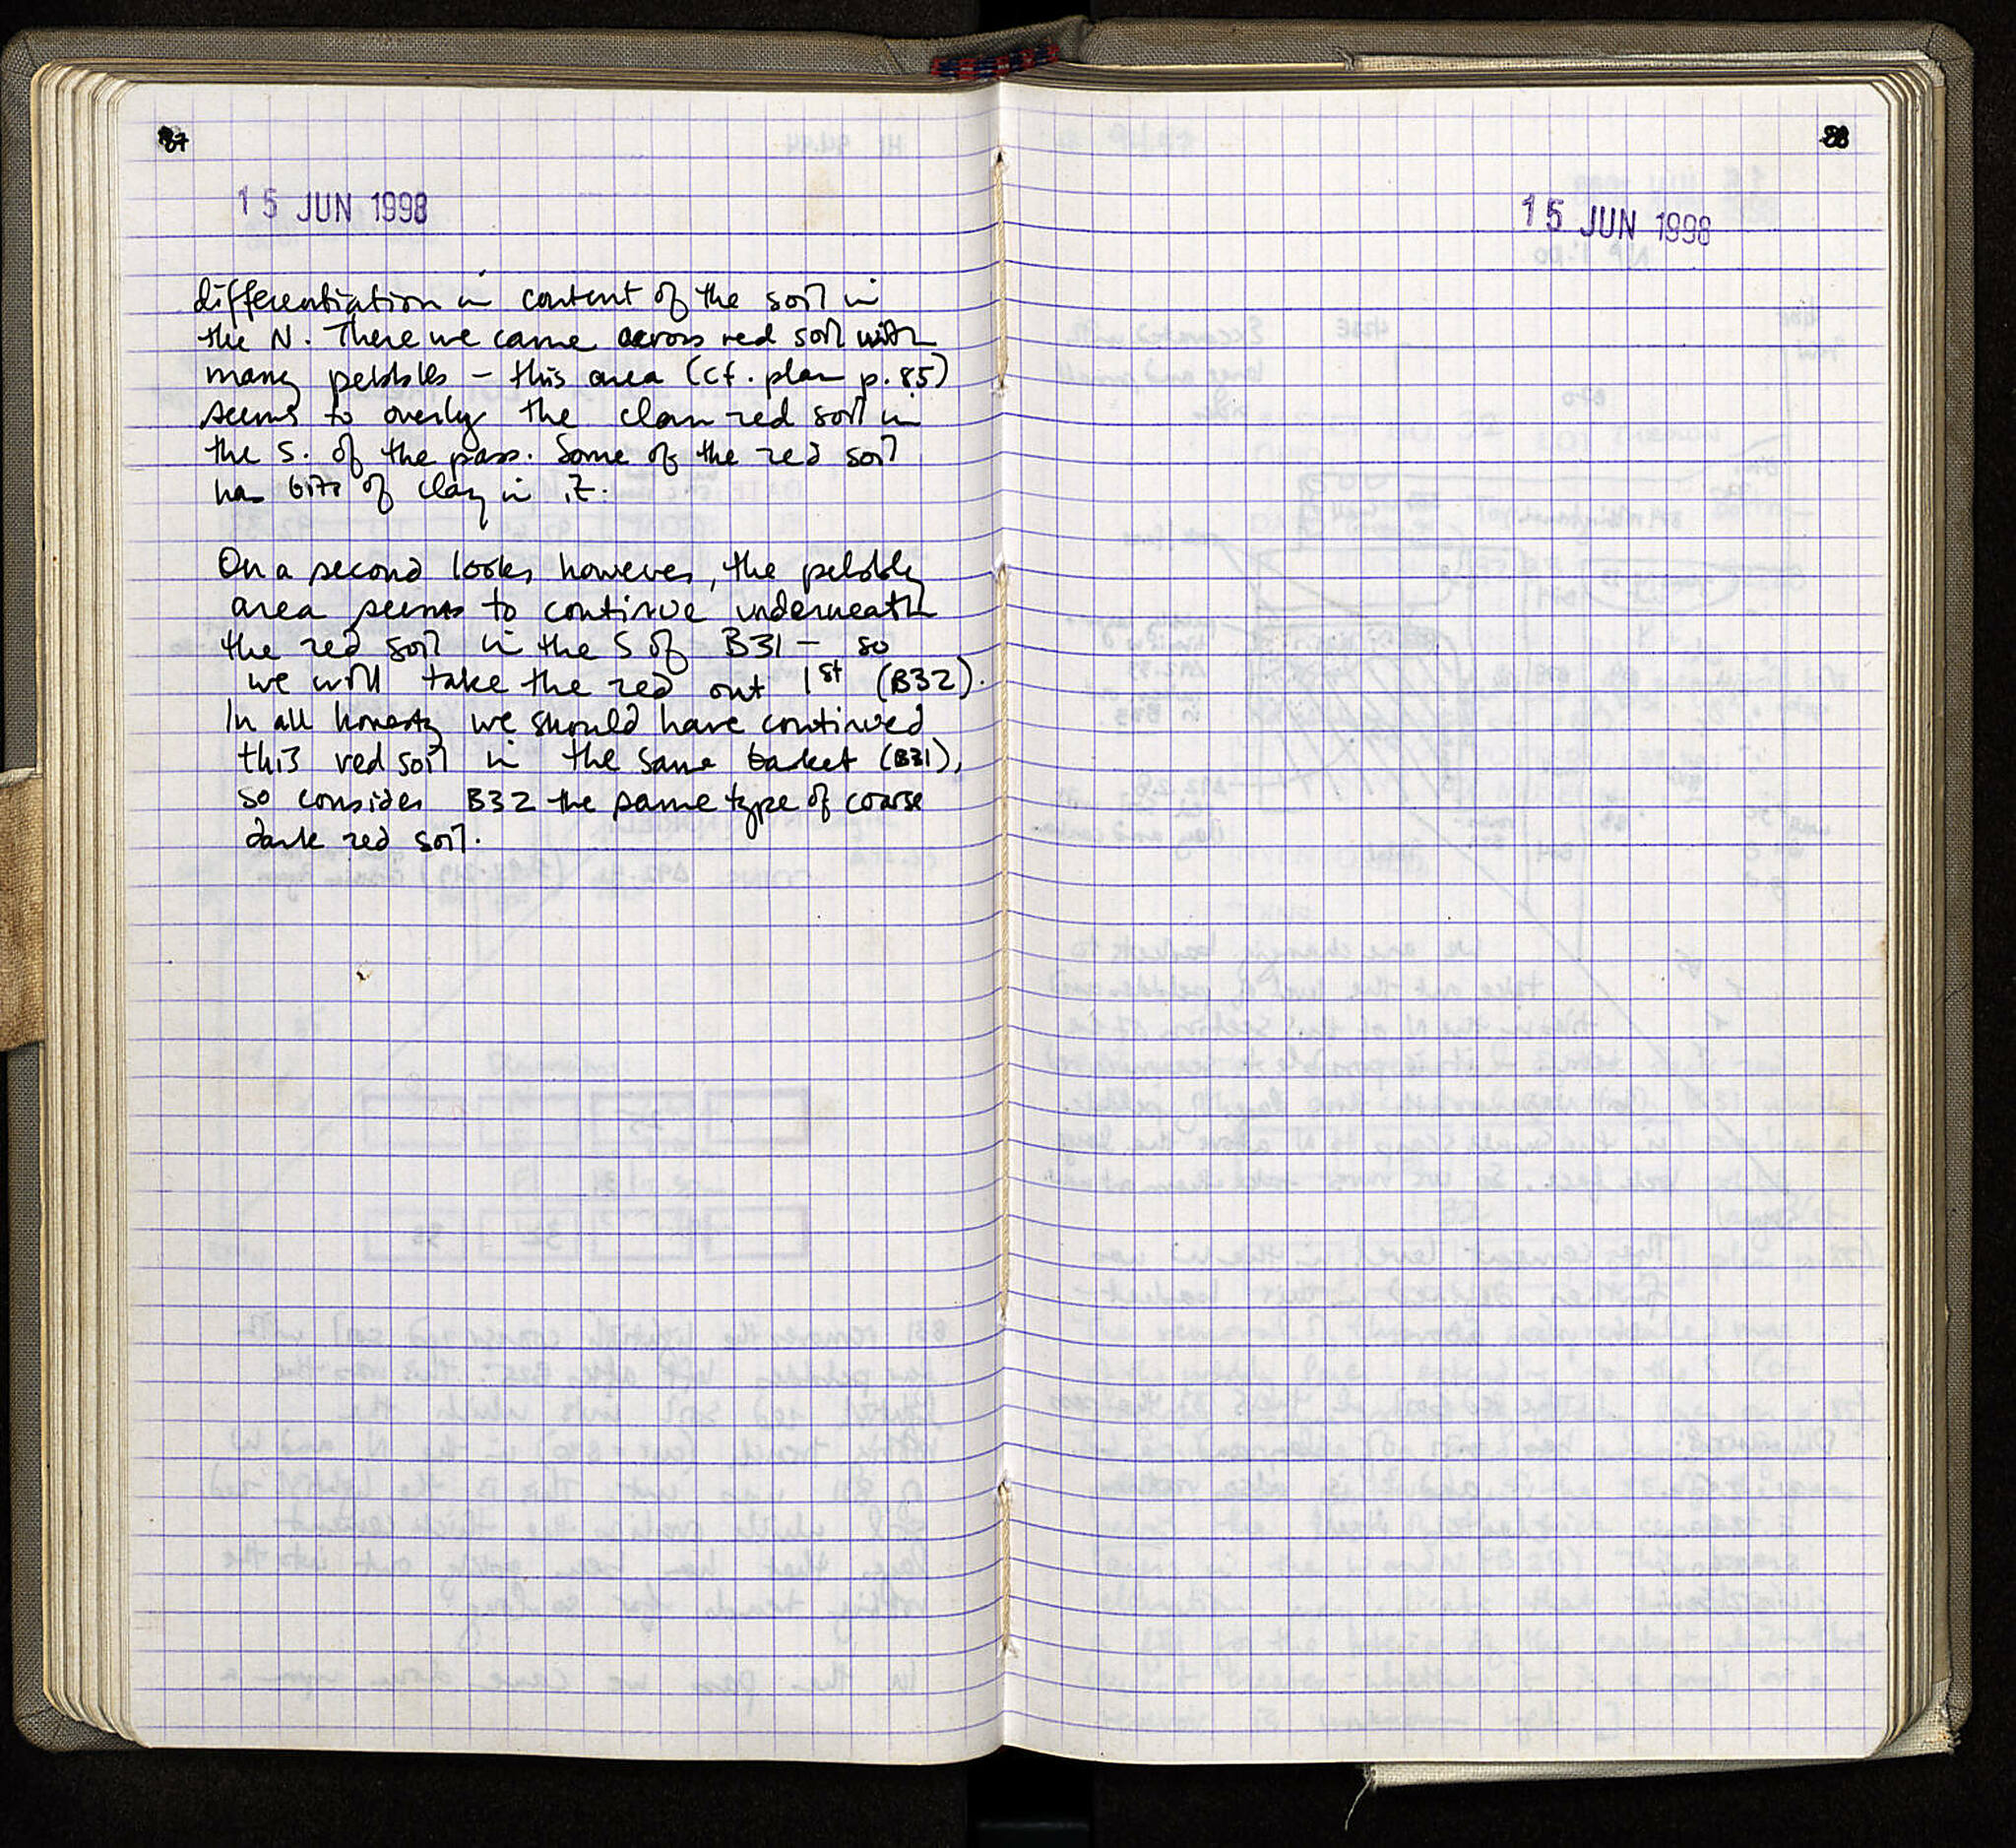 87
15 JUN 1998
differentiation in content of the soil in
the N. There we came across red soil with
many pebbles - this area (cf. plan p. 85)
seems to overly the clean red soil in
the S. of the pass. Some of the red soil
has bits of clay in it.
On a second look however, the pebbly
area seems to continue underneath
the red soil in the S of B31 - so
we will take the red out 1st (B32).
In all honesty we should have continued
this red soil in the same basket (B31),
so consider B32 the same type of coarse
dark red soil.
88
15 JUN 1998